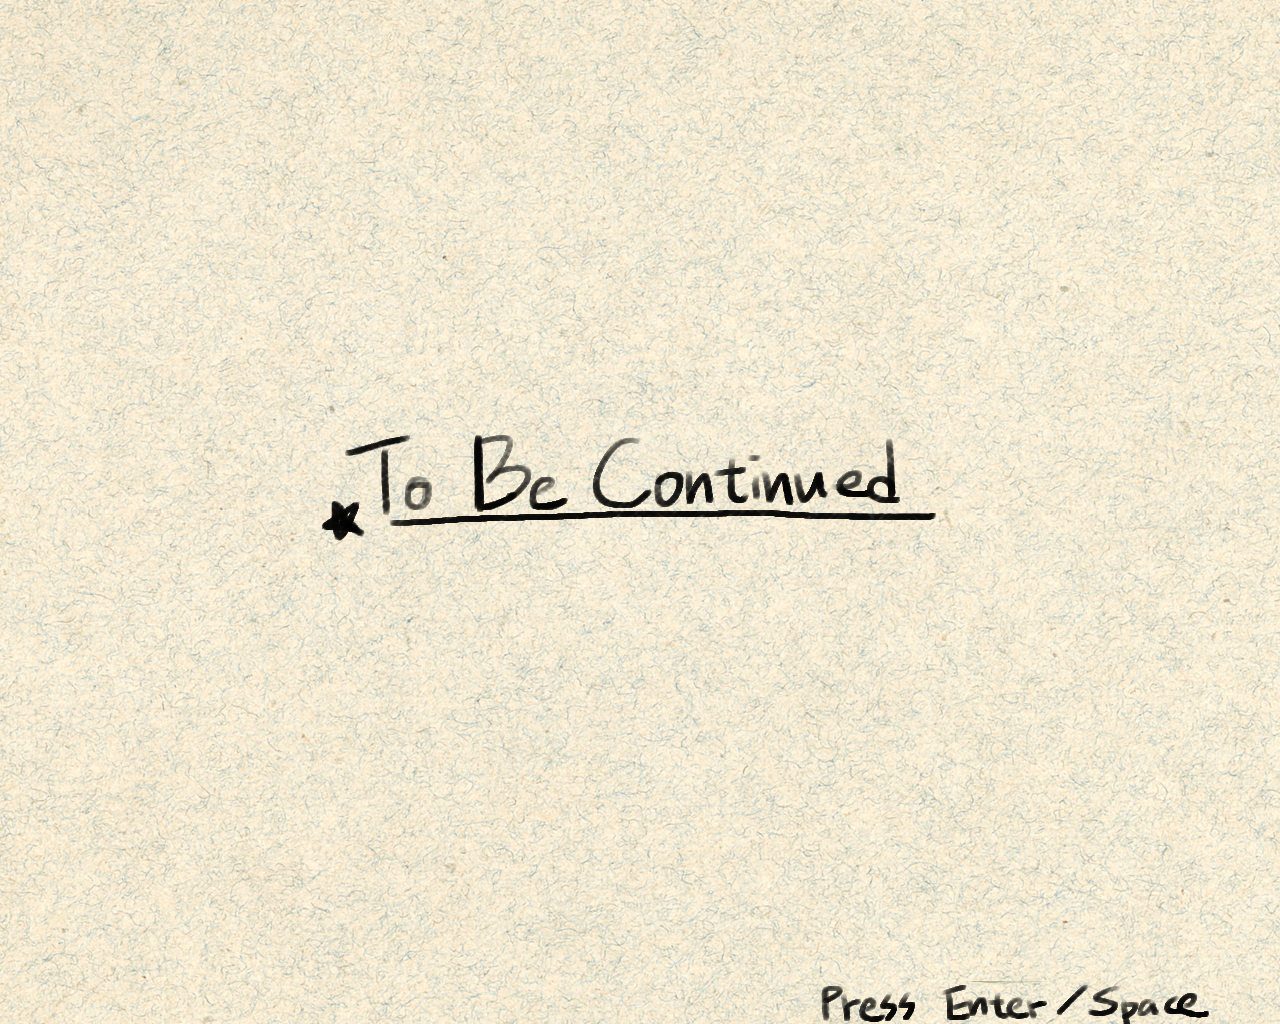 To Be Continued
Press Enter/Space